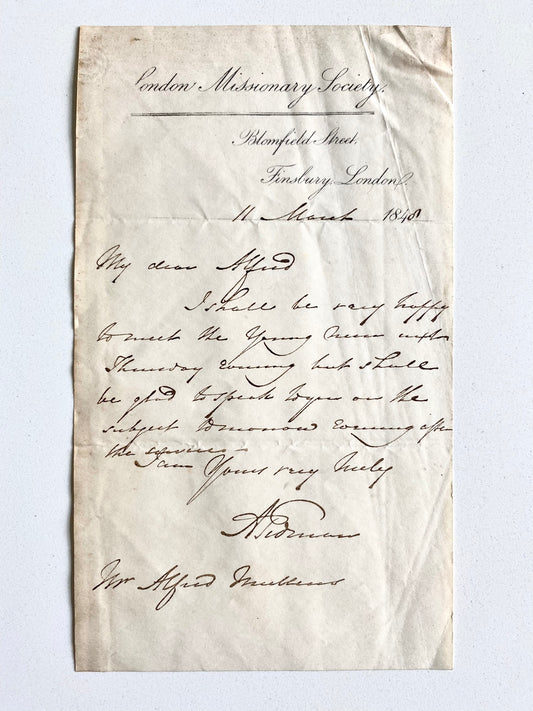 London Missionary Society,
Blomfield Street,
Finsbury, London,
11 March 1848
My dear Alfred
I shall be very happy
to meet the Young Men next
Thursday Evening but shall
be glad to speak to you on the
subject tomorrow Evening after
the service
I am Yours very truly
A Tidman
Mr Alfred Mullens